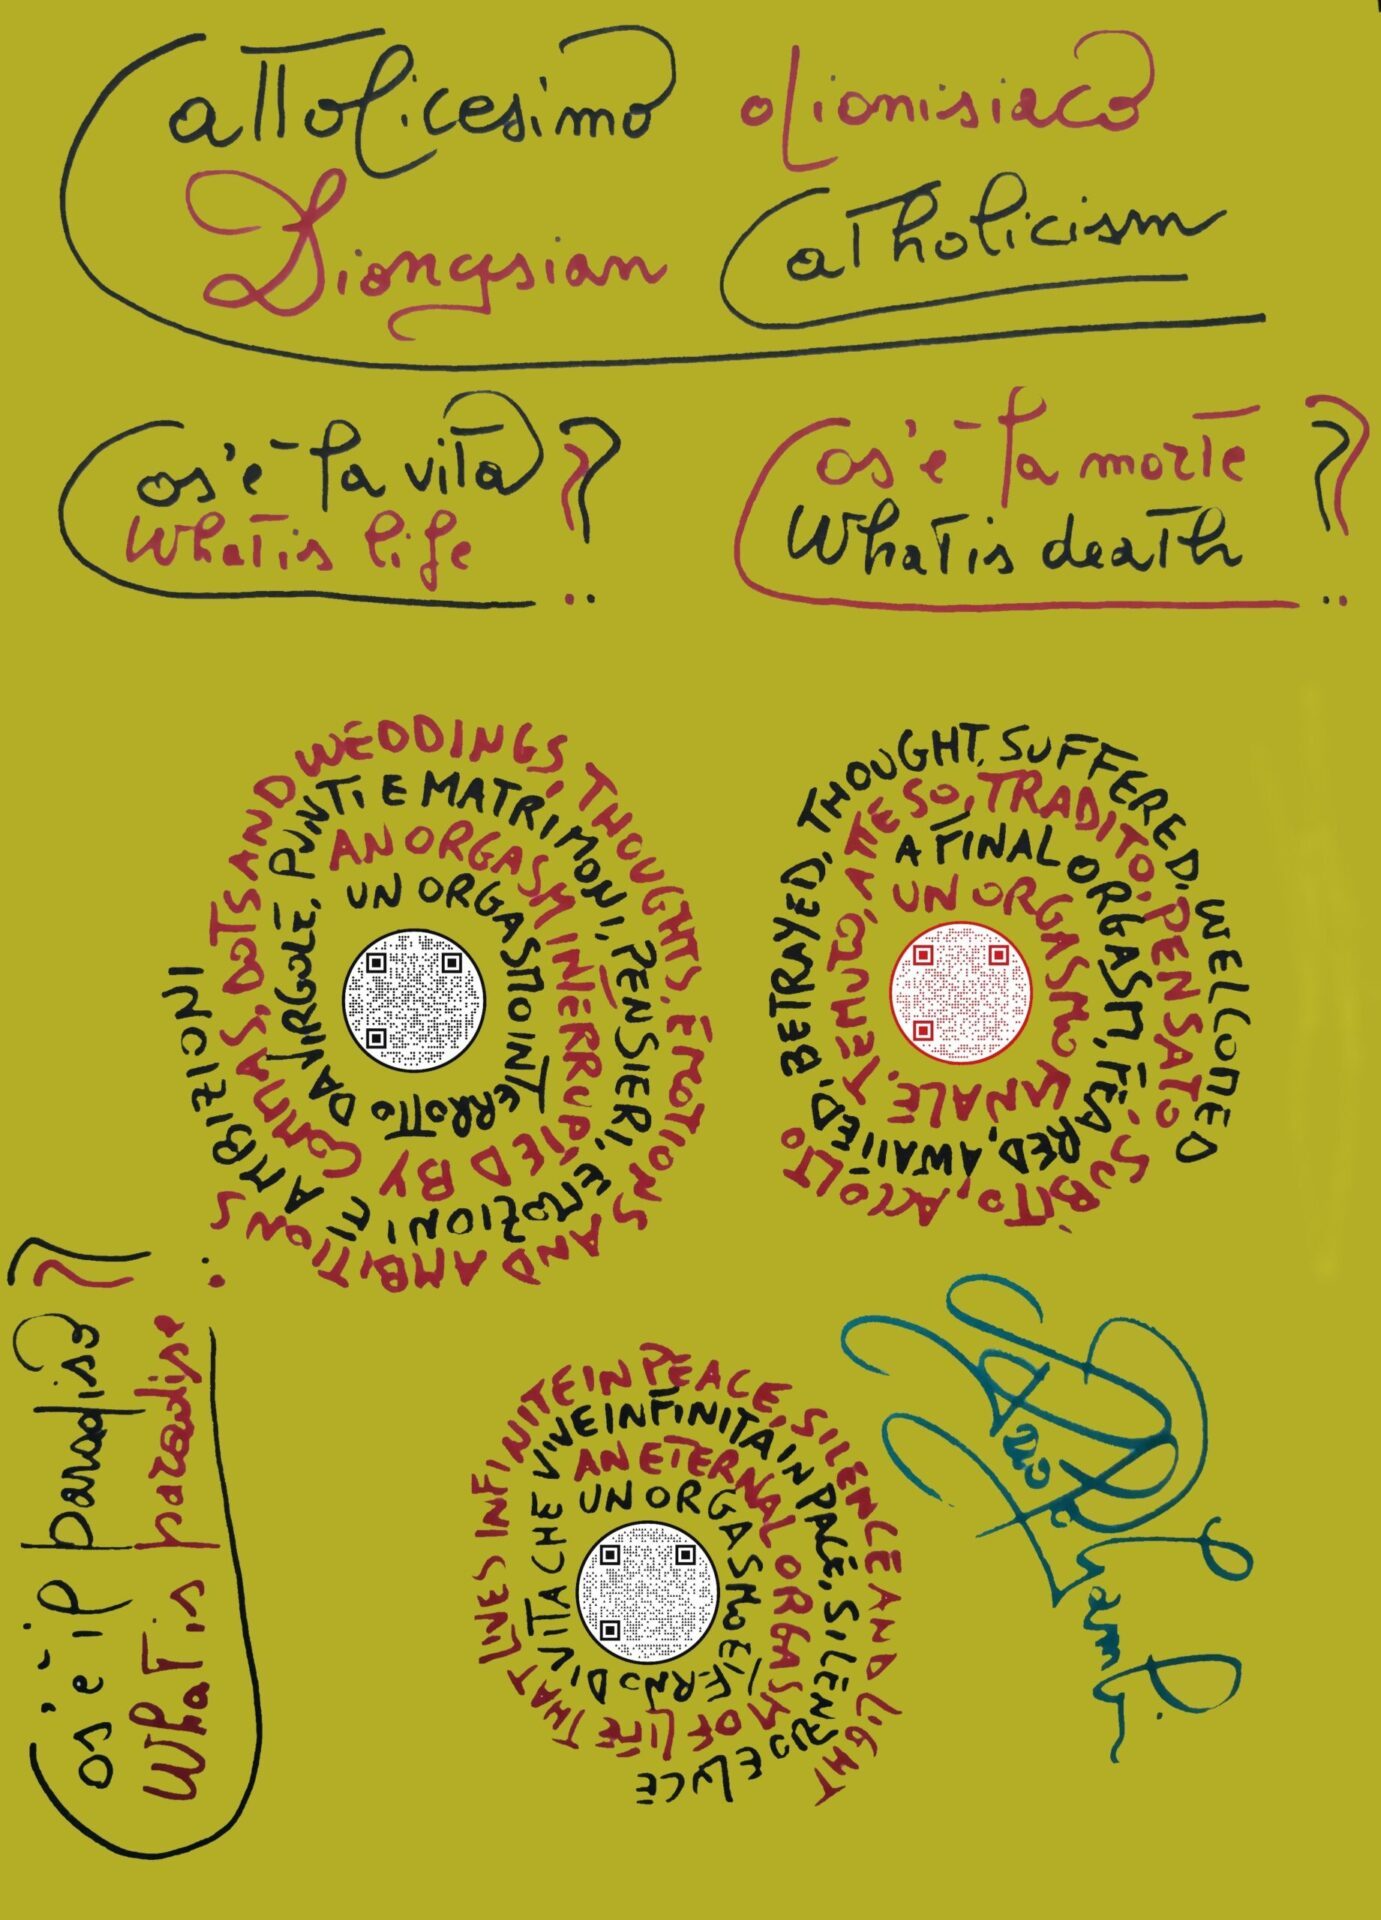 Cattolicesimo dionisiaco
Dionysian Catholicism
Cos'è la vita ?
What is life ?
Cos'è la morte ?
What is death ?
UN ORGASMO INTERROTTO DA VIRGOLE, PUNTI E MATRIMONI, PENSIERI, EMOZIONI E AMBIZIONI
AN ORGASM INERRUPTED BY COMMAS, DOTS AND WEDDINGS, THOUGHTS, EMOTIONS AND AMBITIONS
UN ORGASMO FINALE, TEMUTO, ATTESO, TRADITO, PENSATO, SUBITO, ACCOLTO
A FINAL ORGASM, FEARED, AWAITED, BETRAYED, THOUGHT, SUFFERED, WELCOMED
Cos'è il paradiso ?
What is paradise ?
UN ORGASMO ETERNO DI VITA CHE VIVE INFINITA IN PACE, SILENZIO E LUCE
AN ETERNAL ORGASM OF LIFE THAT LIVES INFINITE IN PEACE, SILENCE AND LIGHT